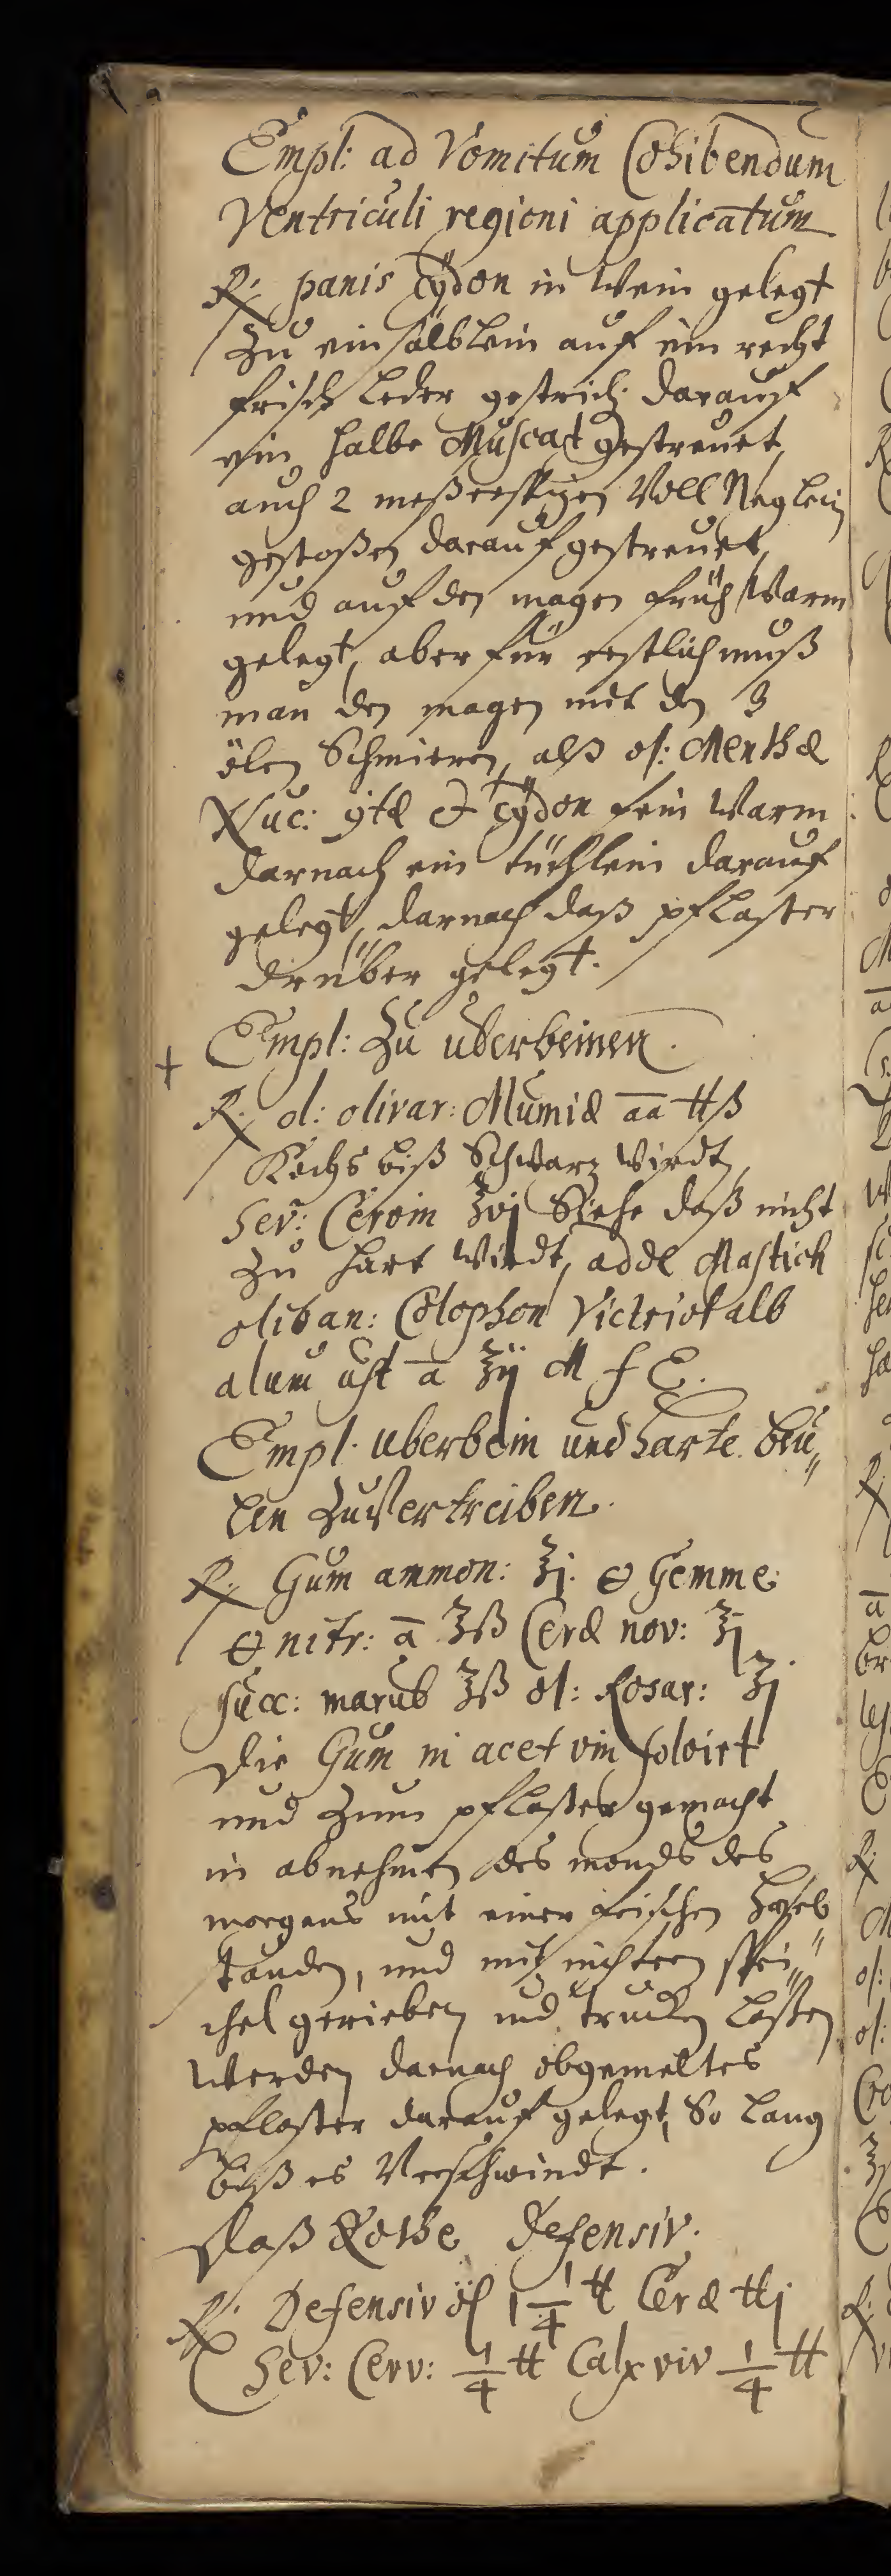 Empl: ad Vomitum Cohibendum
Ventriculi regioni applicatum
℞. panis Cÿdon in Wein gelegt
Zu ein sälblein auf ein recht
frisch Leder gestrich: darauf
ein halbe Muscat gestreuet
auch 2 meßerspizen Voll Neglein
gestoßen darauf gestreuet,
und auf den magen früh Warm
gelegt, aber für erstlich muß
man den magen mit den 3
ölen Schmieren, alß ol: Menthæ
Nuc: 9tæ et Cÿdon fein Warm
darnach ein tüchlein darauf
gelegt, darnach daß pflaster
drüber gelegt.
+ Empl: Zu uberbeinen.
℞. ol: olivar: Mumiæ āā ℔ß
Kochs biß Schwarz Wirdt,
Sev: Cervin ℥vj Siehe daß nicht
Zu hart Wirdt, adde Mastich
oliban: Colophon Victriol alb
alum ust ā ℥ij M f E.
Empl. uberbein und harte beu„
len Zu Vertreiben.
℞. Gum ammon: ℥j. ⊖ Gemme
⊖ nitr: ā ℥ß Ceræ nov: ℥j
Succ: marub ℥ß ol: Rosar: ℥j
die Gum in acet vin solvirt
und Zum pflaster gemacht
in abnehmen des monds des
morgens mit einer frischen Hasel„
stauden, und mit nichtern spei„
chel gerieben und trucken laßen
Werden darnach obgemeltes
pflaster darauf gelegt, So lang
biß es Verschwindt.
Daß Rothe Defensiv.
℞. Defensiv öl 1 1/4 ℔ Ceræ ℔j
Sev: Cerv: 1/4 ℔ Calx viv 1/4 ℔